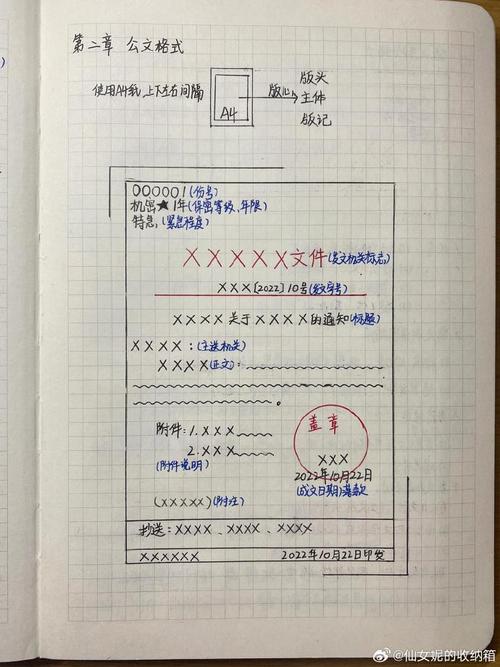 第二章 公文格式
使用A4纸,上下左右间隔
A4
版心
版头
主体
版记
000001(份号)
机密★1年(保密等级、年限)
特急(紧急程度)
XXXXX文件(发文机关标志)
XXX[2022]10号(发文字号)
XXXX关于XXXX的通知(标题)
XXXX:(主送机关)
XXXX(正文):
。
附件:1.XXX
2.XXX
(附件说明)
盖章
XXX
2022年10月22日
(成文日期)落款
(XXXXX)(附注)
抄送:XXXX、XXXX、XXXX
XXXXXX 2022年10月22日印发
@仙女妮的收纳箱